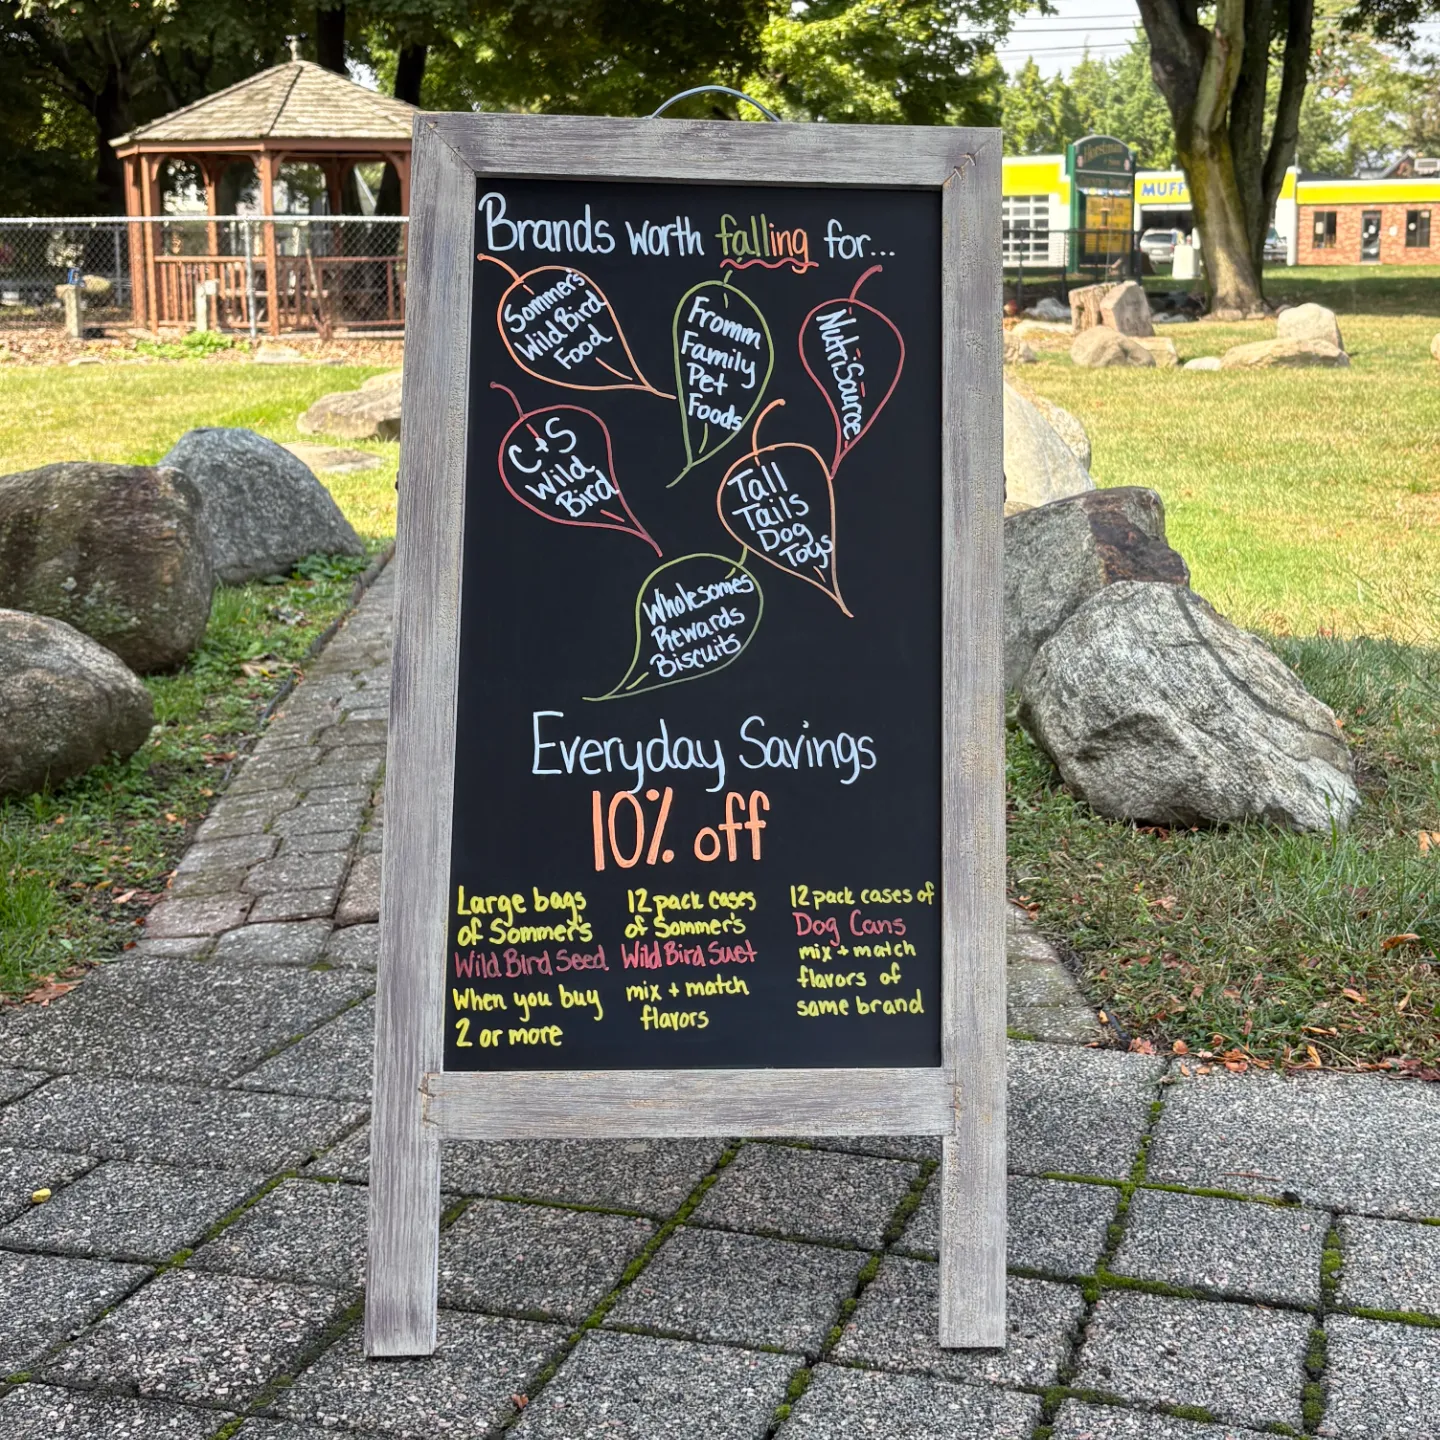 Brands worth falling for...
Sommer's
Wild Bird
Food
Fromm
Family
Pet
Foods
NutriSource
C+S
Wild
Bird
Tall
Tails
Dog
Toys
Wholesomes
Rewards
Biscuits
Everyday Savings
10% off
Large bags
of Sommer's
Wild Bird Seed
When you buy
2 or more
12 pack cases
of Sommer's
Wild Bird Suet
mix + match
flavors
12 pack cases of
Dog Cans
mix + match
flavors of
same brand
MUFF